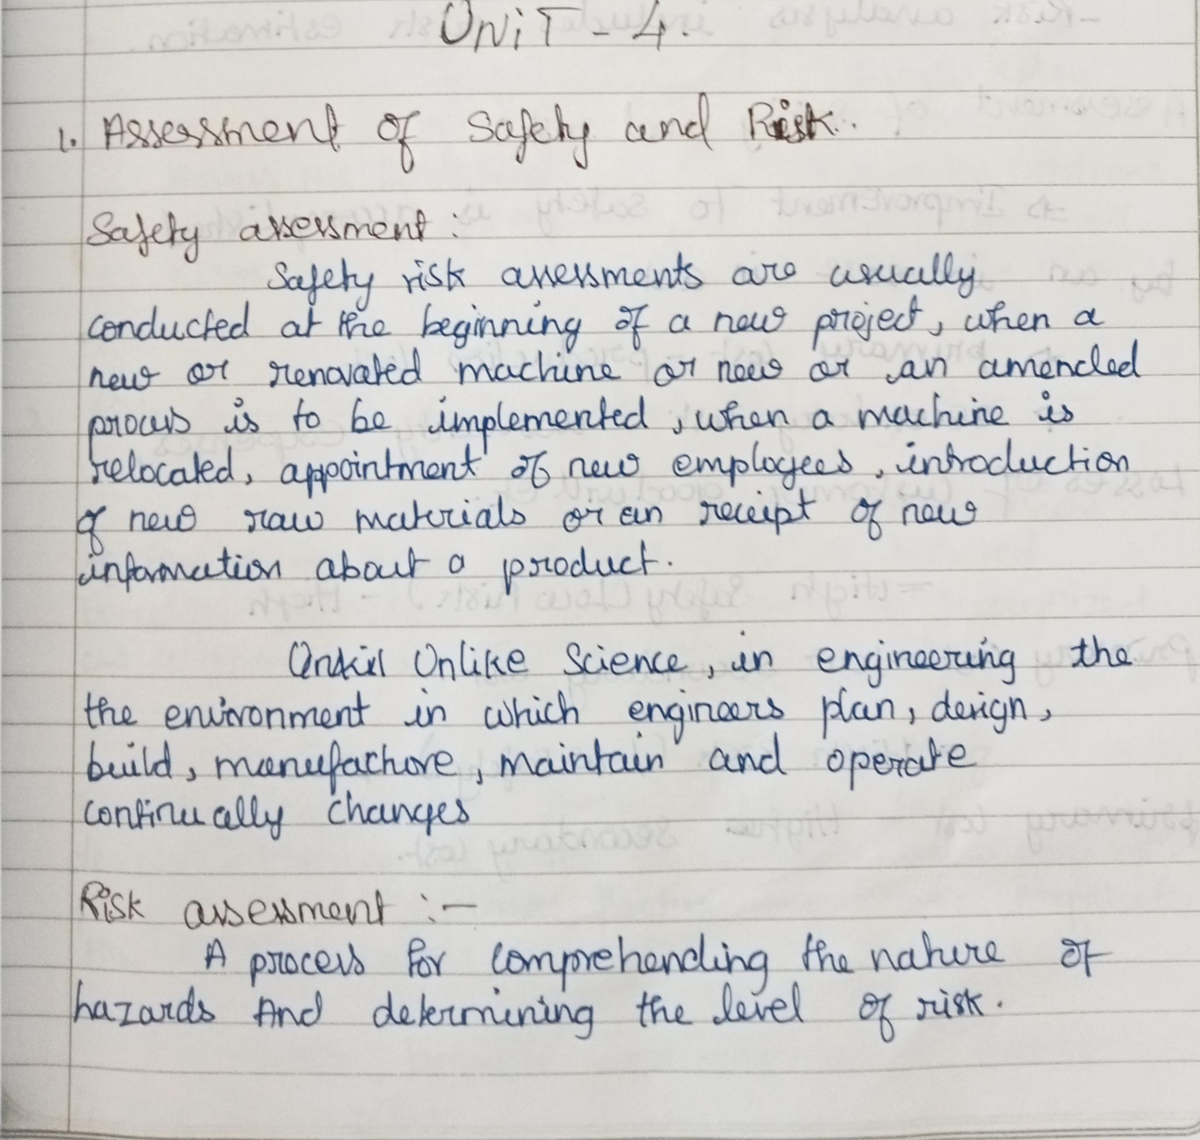 UNiT - 4.
1. Assessment of Safety and Risk.
Safety assessment :
Safety risk assessments are usually
conducted at the beginning of a new project, when a
new or renovated machine or new or an amended
process is to be implemented, when a machine is
relocated, appointment of new employees, introduction
of new raw materials or an receipt of new
information about a product.
Unlike Science, in engineering the
the environment in which engineers plan, design,
build, manufacture, maintain and operate
continually changes
Risk assessment :-
A process for comprehending the nature of
hazards And determining the level of risk.